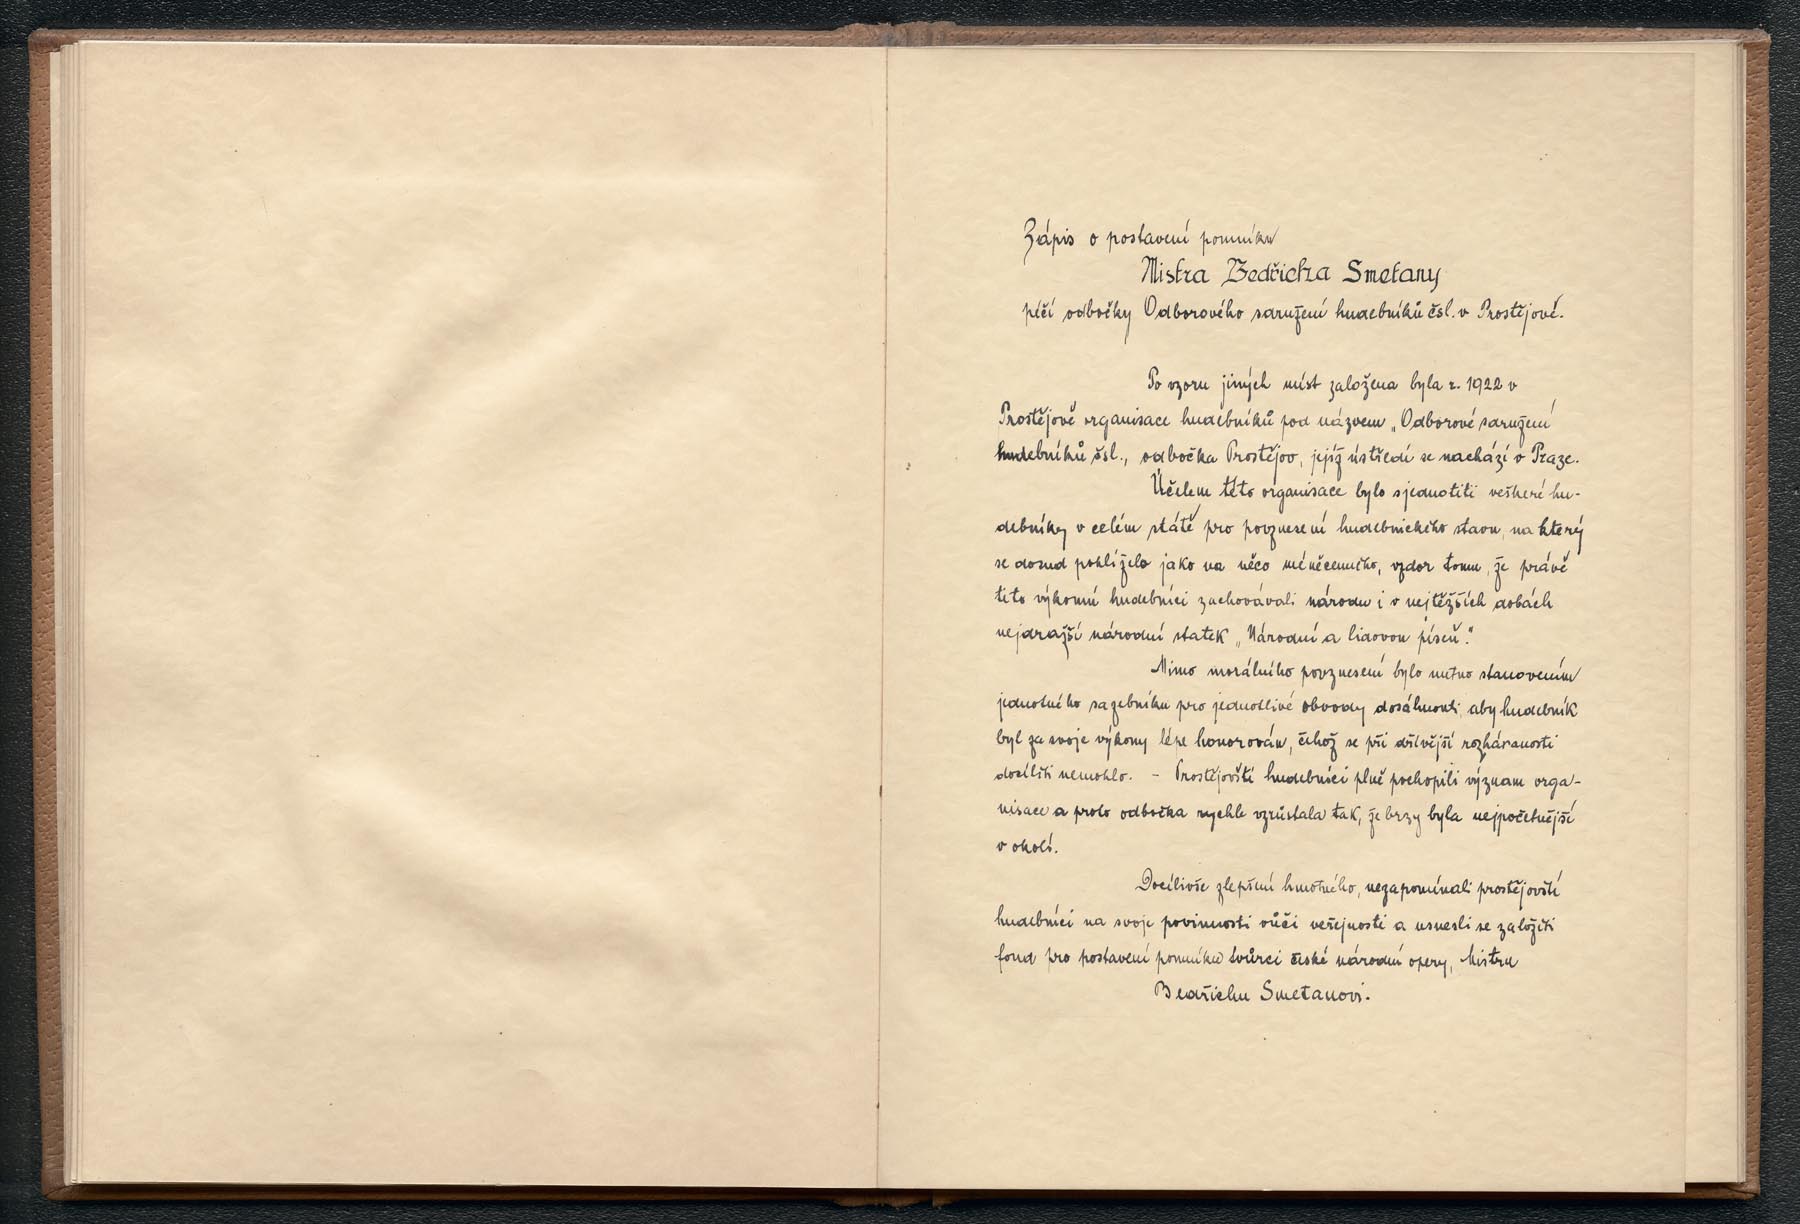 Zápis o postavení pomníku
Mistra Bedřicha Smetany
péčí odbočky Odborového sdružení hudebníků čsl. v Prostějově.
Po vzoru jiných míst založena byla r. 1922 v
Prostějově organisace hudebníků pod názvem „Odborové sdružení
hudebníků čsl., odbočka Prostějov, jejíž ústředí se nachází v Praze.
Účelem této organisace bylo sjednotiti veškeré hu-
debníky v celém státě pro povznesení hudebnického stavu, na který
se dosud pohlíželo jako na něco méněcenného, vzdor tomu, že právě
tito výkonní hudebníci zachovávali národu i v nejtěžších dobách
nejdražší národní statek „Národní a lidovou píseň."
Mimo morálního povznesení bylo nutno stanovením
jednotného sazebníku pro jednotlivé obvody dosáhnouti, aby hudebník
byl za svoje výkony lépe honorován, čehož se při dřívější rozháranosti
docíliti nemohlo. – Prostějovští hudebníci plně pochopili význam orga-
nisace a proto odbočka rychle vzrůstala tak, že brzy byla nejpočetnější
v okolí.
Docílivše zlepšení hmotného, nezapomínali prostějovští
hudebníci na svoje povinnosti vůči veřejnosti a usnesli se založiti
fond pro postavení pomníku tvůrci české národní opery, Mistru
Bedřichu Smetanovi.